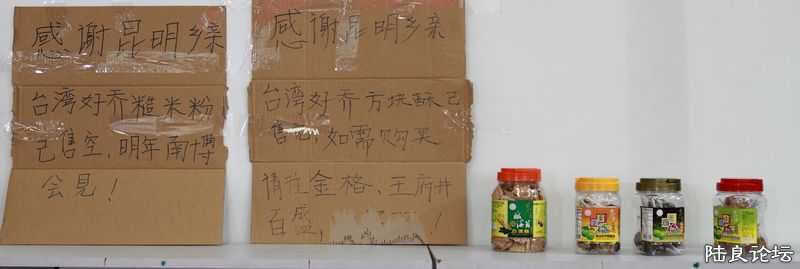 感谢昆明乡亲
台湾好乔糙米粉
已售空,明年南博
会见!
感谢昆明乡亲
台湾好乔方块酥已
售完,如需购买
请往金格、王府井
百盛,
!
陆良论坛